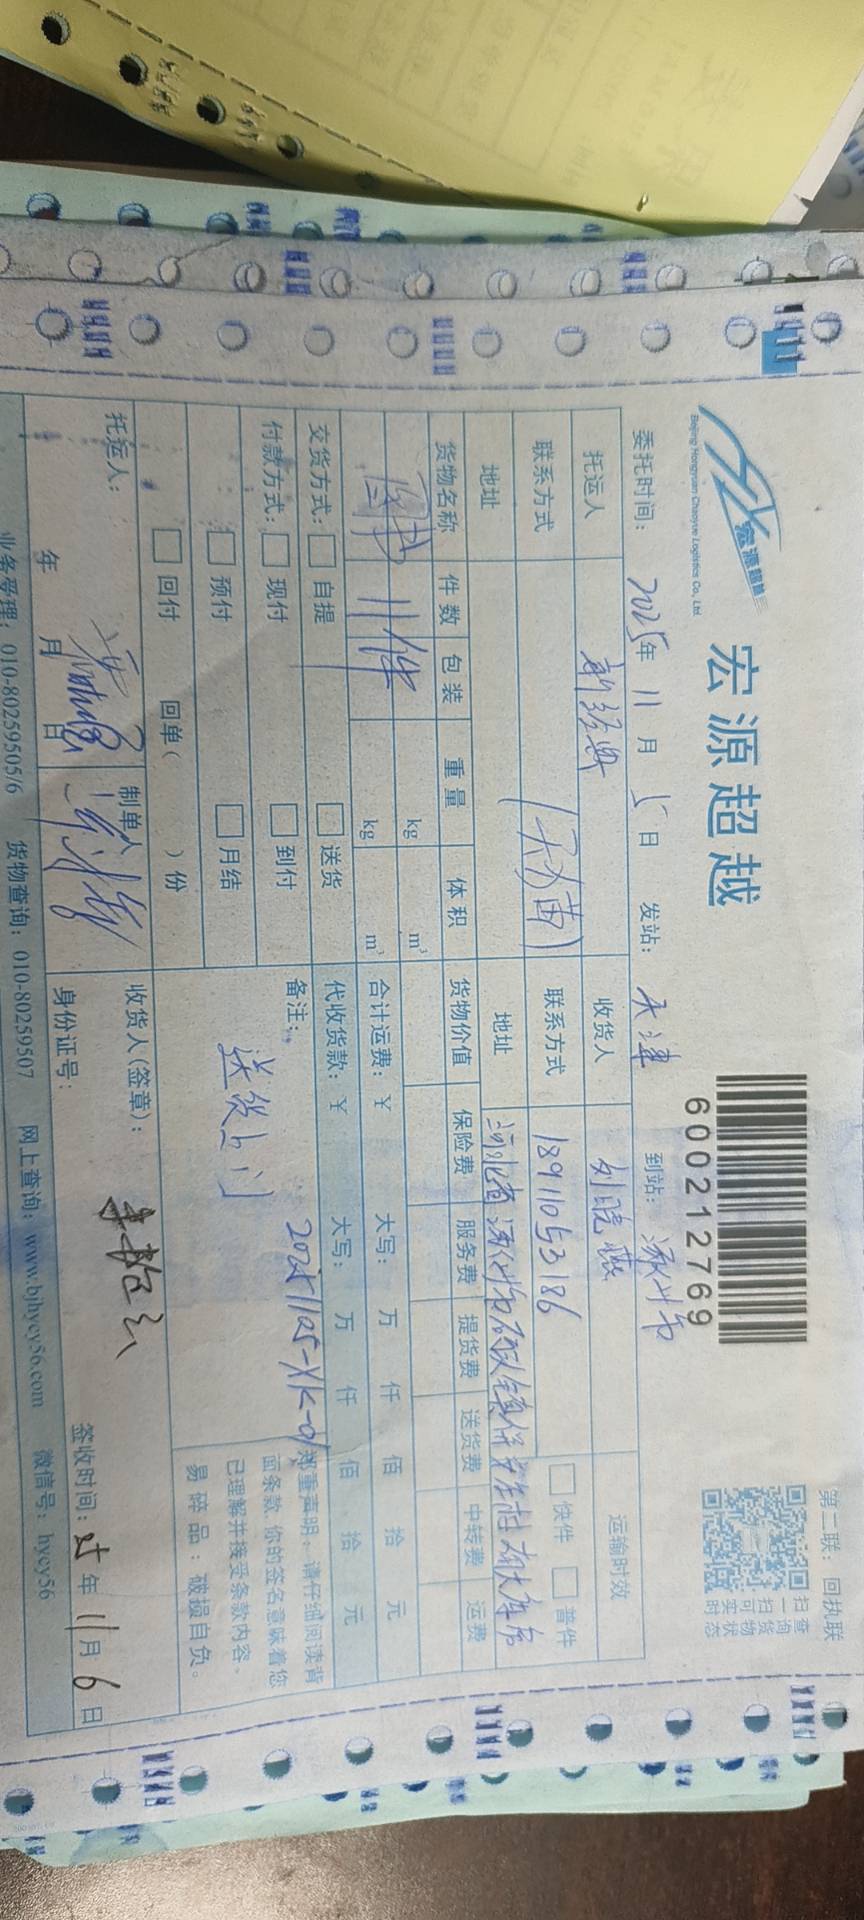 宏源超越
Beijing Hongyuan Chaoyue Logistics Co., Ltd.
宏源超越
600212769
第二联：回执联
扫一扫可实时
查询货物状态
委托时间： 2025年 11月 5日 发站： 天津 到站： 涿州市
托运人 新经典 收货人 刘晓燕 运输时效
联系方式 联系方式 18911053186 快件 普件
地址 地址 河北省涿州市
货物名称 件数 包装 重量 体积 货物价值 保险费 服务费 提货费 送货费 中转费 运费
图书 11件 kg m³
kg m³
合计运费：￥ 大写： 万 仟 佰 拾 元
交货方式： 自提 送货 代收货款：￥ 大写： 万 仟 佰 拾 元
付款方式： 现付 到付 备注： 20251105-XK-01
预付 月结 送货上门
回付 回单（ ）份
郑重声明：请仔细阅读背
面条款,你的签名意味着您
已理解并接受条款内容。
易碎品：破损自负。
托运人： 制单人 收货人(签章)：
年 月 日 身份证号： 签收时间： 25年 11月 6日
业务受理：010-80259505/6 货物查询：010-80259507 网上查询：www.bjhycy56.com 微信号：hycy56